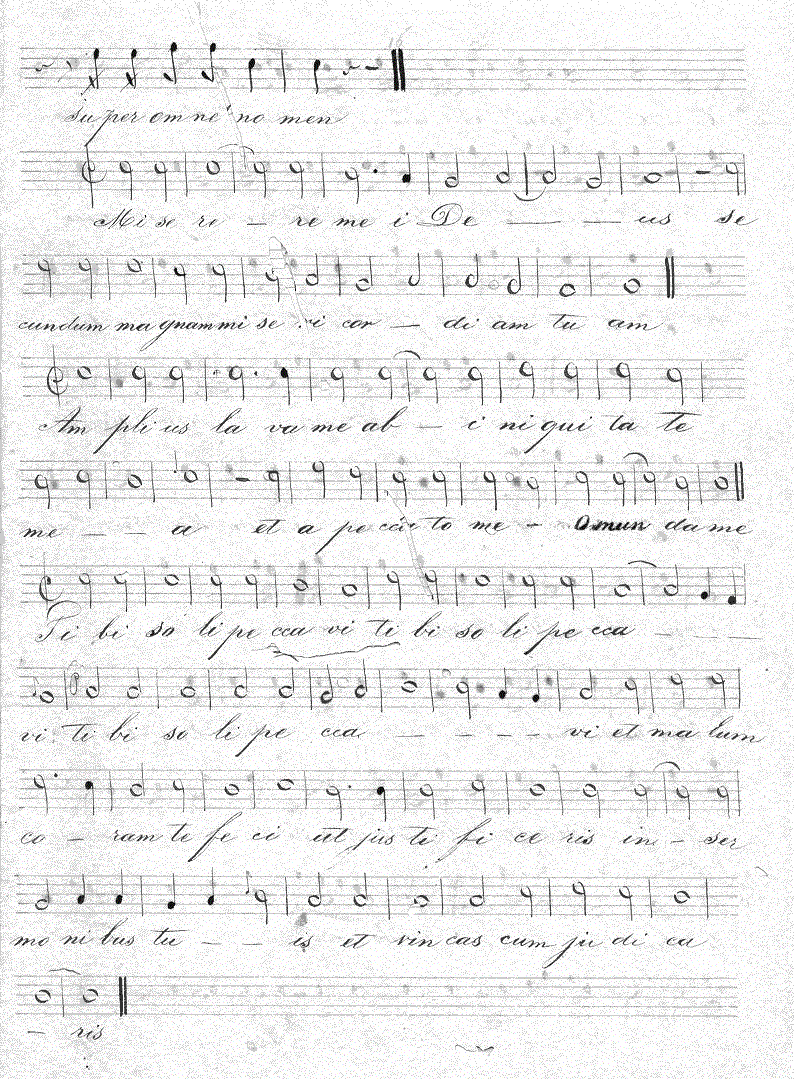 Su per om ne no men
Mi se re - re me i De - - us se
cundum ma gnam mi se ri cor - di am tu am
Am pli us la va me ab - i ni qui ta te
me - - a et a pe cca to me - O mun da me
Ti bi so li pe cca vi ti bi so li pe cca - - -
vi ti bi so li pe cca - - - - vi et ma lum
co - ram te fe ci ut jus ti fi ce ris in - ser
mo ni bus tu - - is et vin cas cum ju di ca
- ris